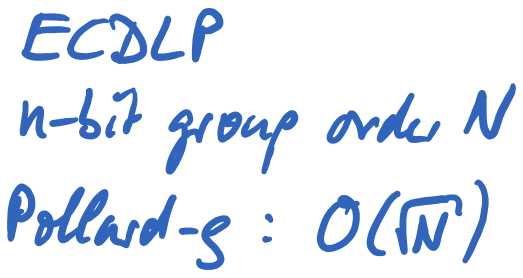 ECDLP
n-bit group order N
Pollard-ρ : O(√N)